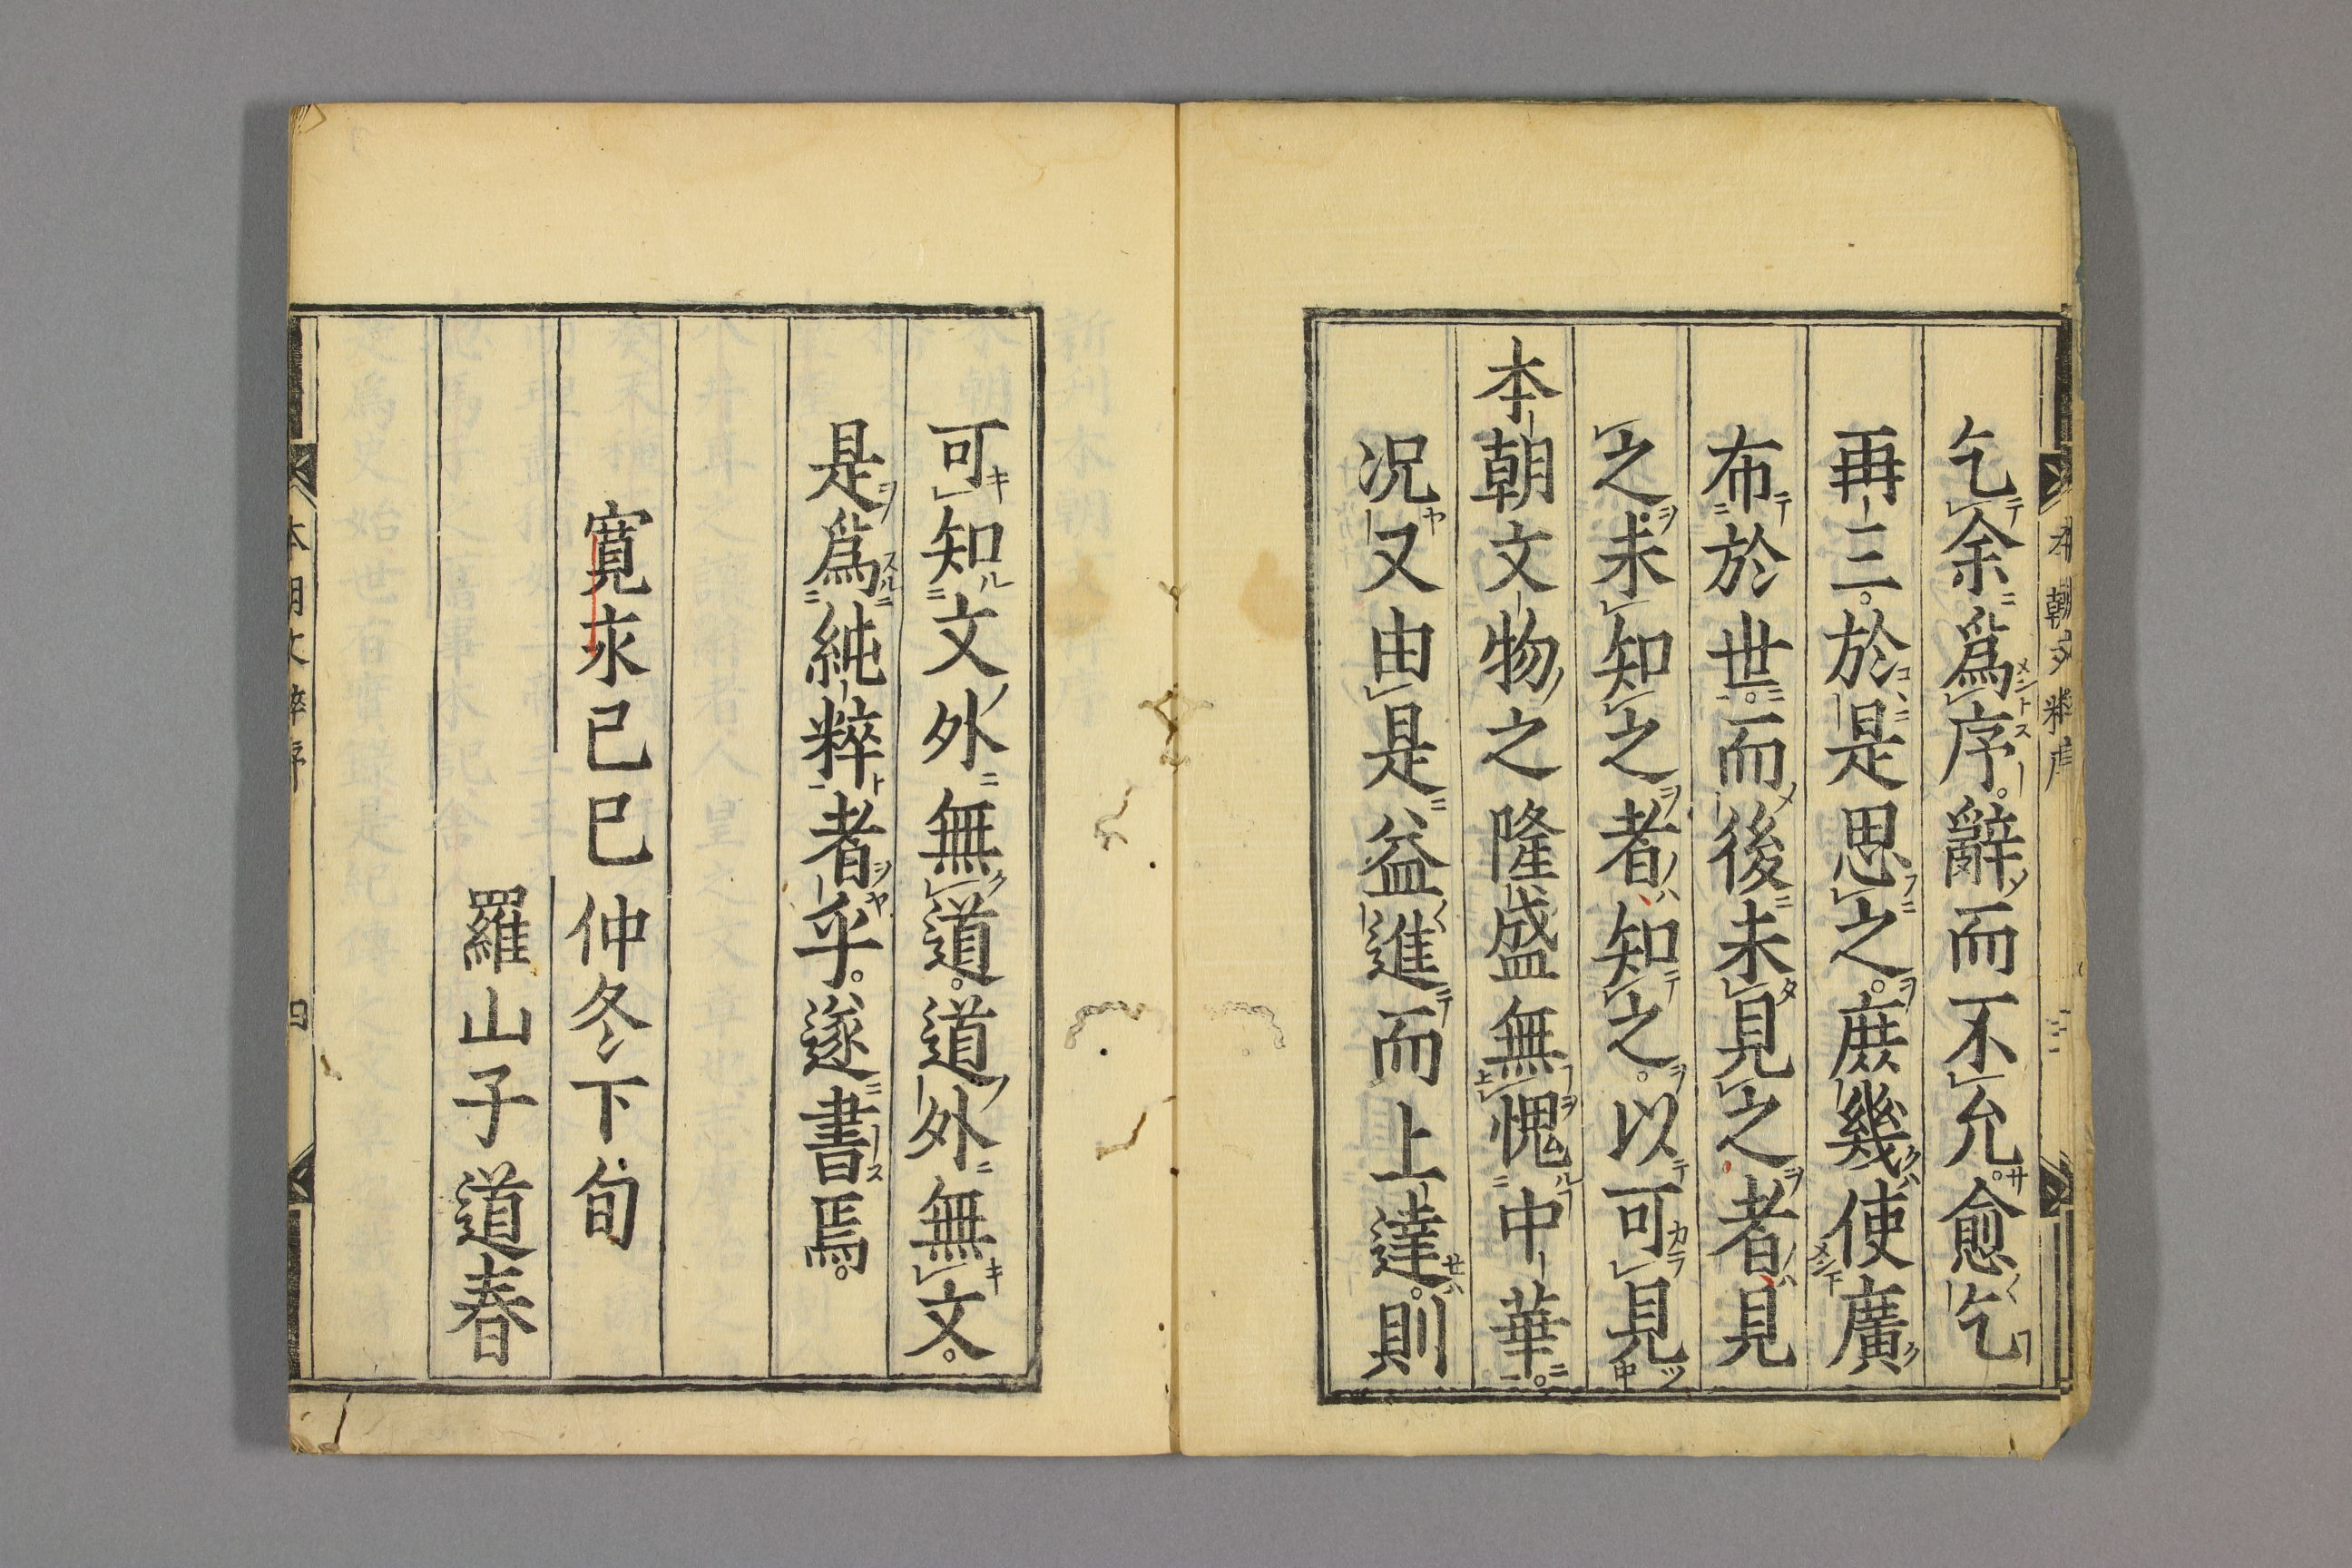 乞余爲序。辭而不允。愈乞
再三。於是思之。庶幾使廣
布於世。而後未見之者見
之未知之者知之。以可見
本朝文物之隆盛無愧中華。
况又由是益進而上達。則
可知文外無道。道外無文。
是爲純粹者乎。遂書焉。
寛永己巳仲冬下旬
羅山子道春
本朝文粹序
四